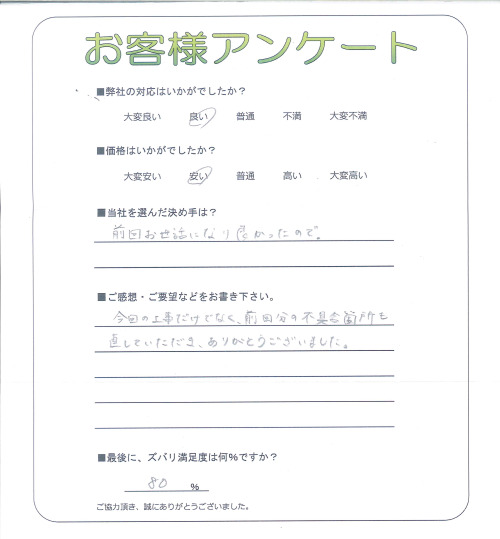 お客様アンケート
■弊社の対応はいかがでしたか？
大変良い 良い 普通 不満 大変不満
■価格はいかがでしたか？
大変安い 安い 普通 高い 大変高い
■当社を選んだ決め手は？
前回お世話になり良かったので。
■ご感想・ご要望などをお書き下さい。
今回の工事だけでなく、前回分の不具合箇所も
直していただき、ありがとうございました。
■最後に、ズバリ満足度は何％ですか？
80 ％
ご協力頂き、誠にありがとうございました。